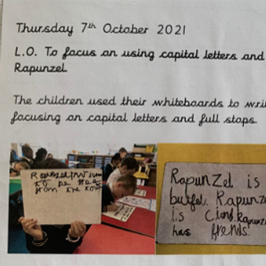 Thursday 7th October 2021
L.O. To focus on using capital letters and
Rapunzel.
The children used their whiteboards to wri
focusing on capital letters and full stops.
to be
from the
Rapunzel is
Rapunze
is
has